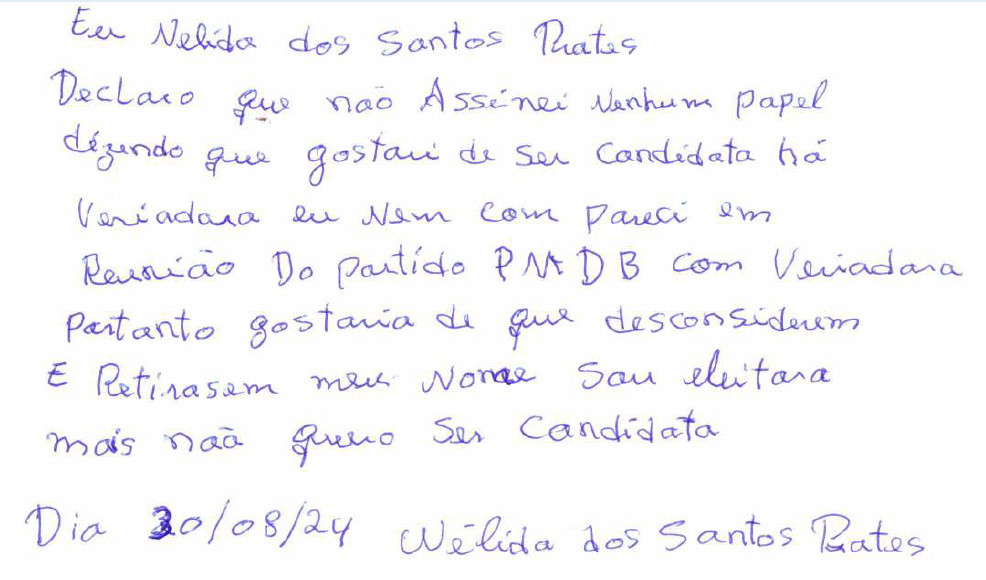 Eu Nelida dos Santos Prates
Declaro que não Assinei Nenhum papel
dizendo que gostari de ser candidata há
Veriadara eu Nem com pareci em
Reunião Do partido PMDB com Veriadara
Partanto gostaria de que desconsiderem
E Retirasem meu Nome Sou eleitara
mais não quero Ser Candidata
Dia 30/08/24 Wélida dos Santos Prates